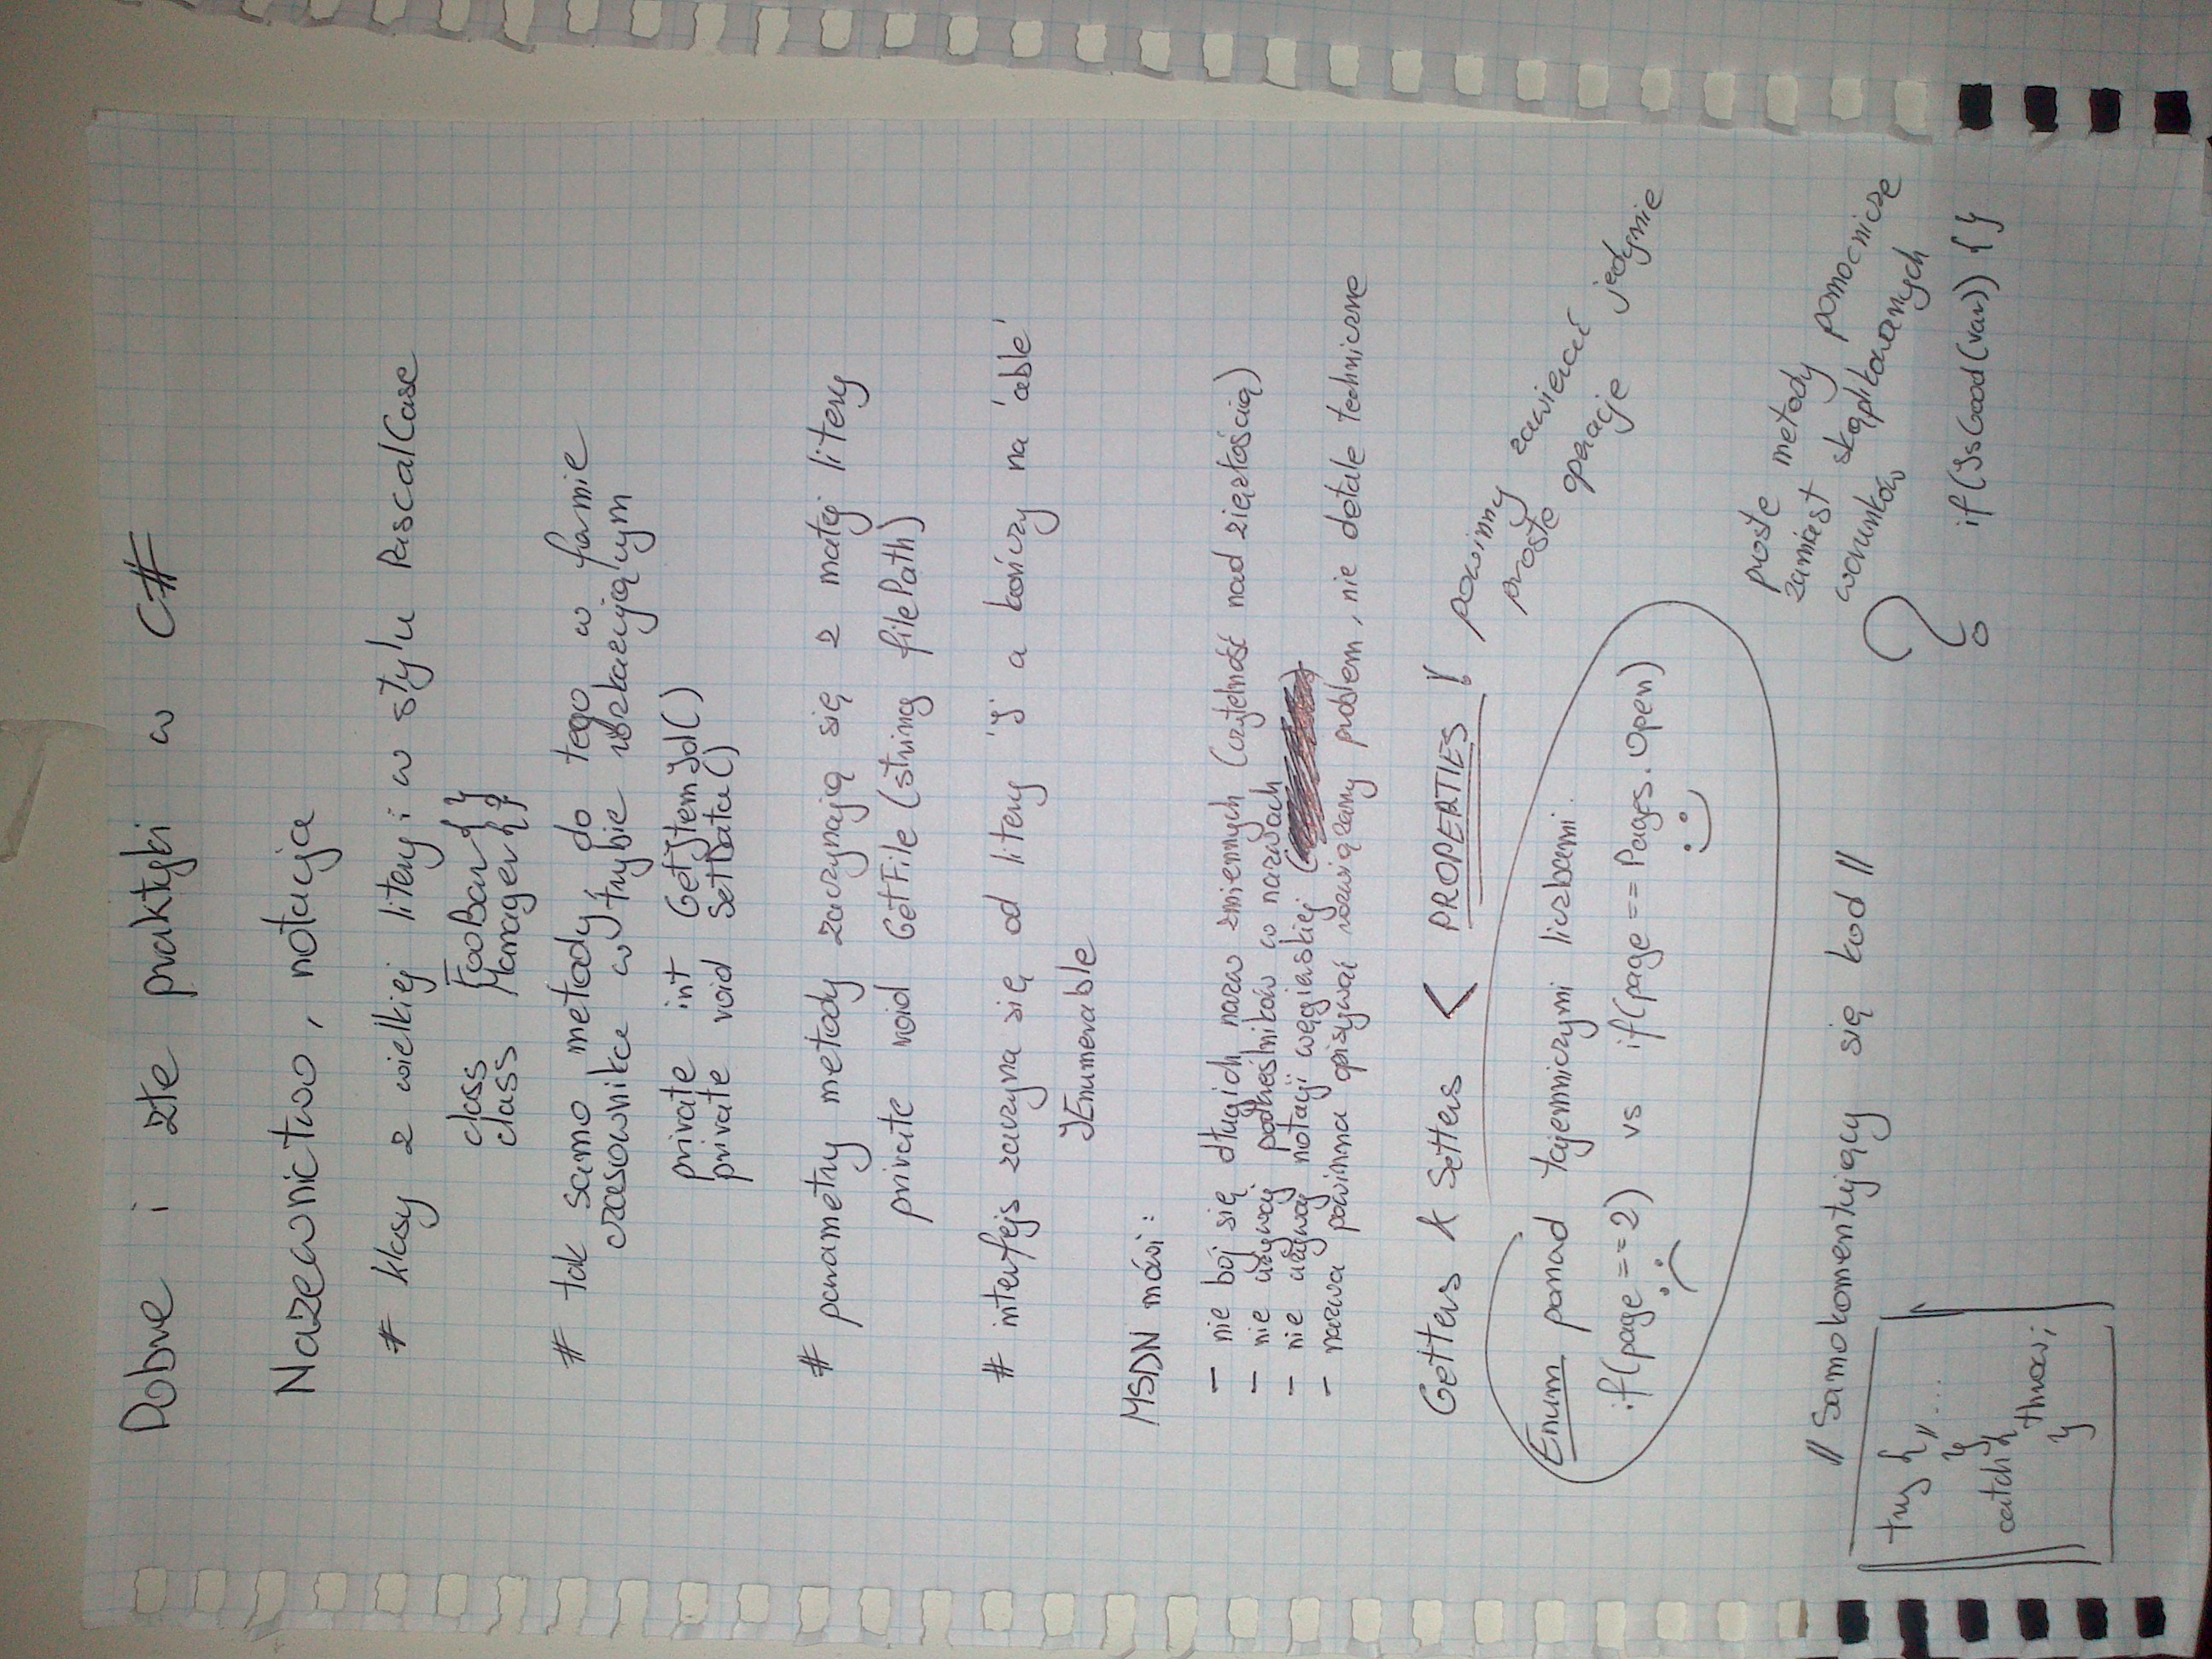 Dobre i złe praktyki w C#
Nazewnictwo, notacja
# klasy z wielkiej litery i w stylu PascalCase
class FooBar{}
class Manager{}
# tak samo metody, do tego w formie
czasownika w trybie rozkazującym
private int GetItemId()
private void SetData()
# parametry metody zaczynają się z małej litery
private void GetFile(string filePath)
# interfejs zaczyna się od litery 'I' a kończy na 'able'
IEnumerable
MSDN mówi:
- nie bój się długich nazw zmiennych (czytelność nad zięzłością)
- nie używaj podkreślników w nazwach
- nie używaj notacji węgierskiej (
- nazwa powinna opisywać rozwiązany problem, nie detale techniczne
Getters & Setters < PROPERTIES !
powinny zawierać jedynie
proste operacje
Enum ponad tajemniczymi liczbami.
if(page == 2) vs if(page == Pages.Open)
:( :)
proste metody pomocnicze
zamiast skąplikowanych
warunków
? if(IsGood(var)) {}
// Samokomentujący się kod //
try {
// ...
}
catch {
throw;
}